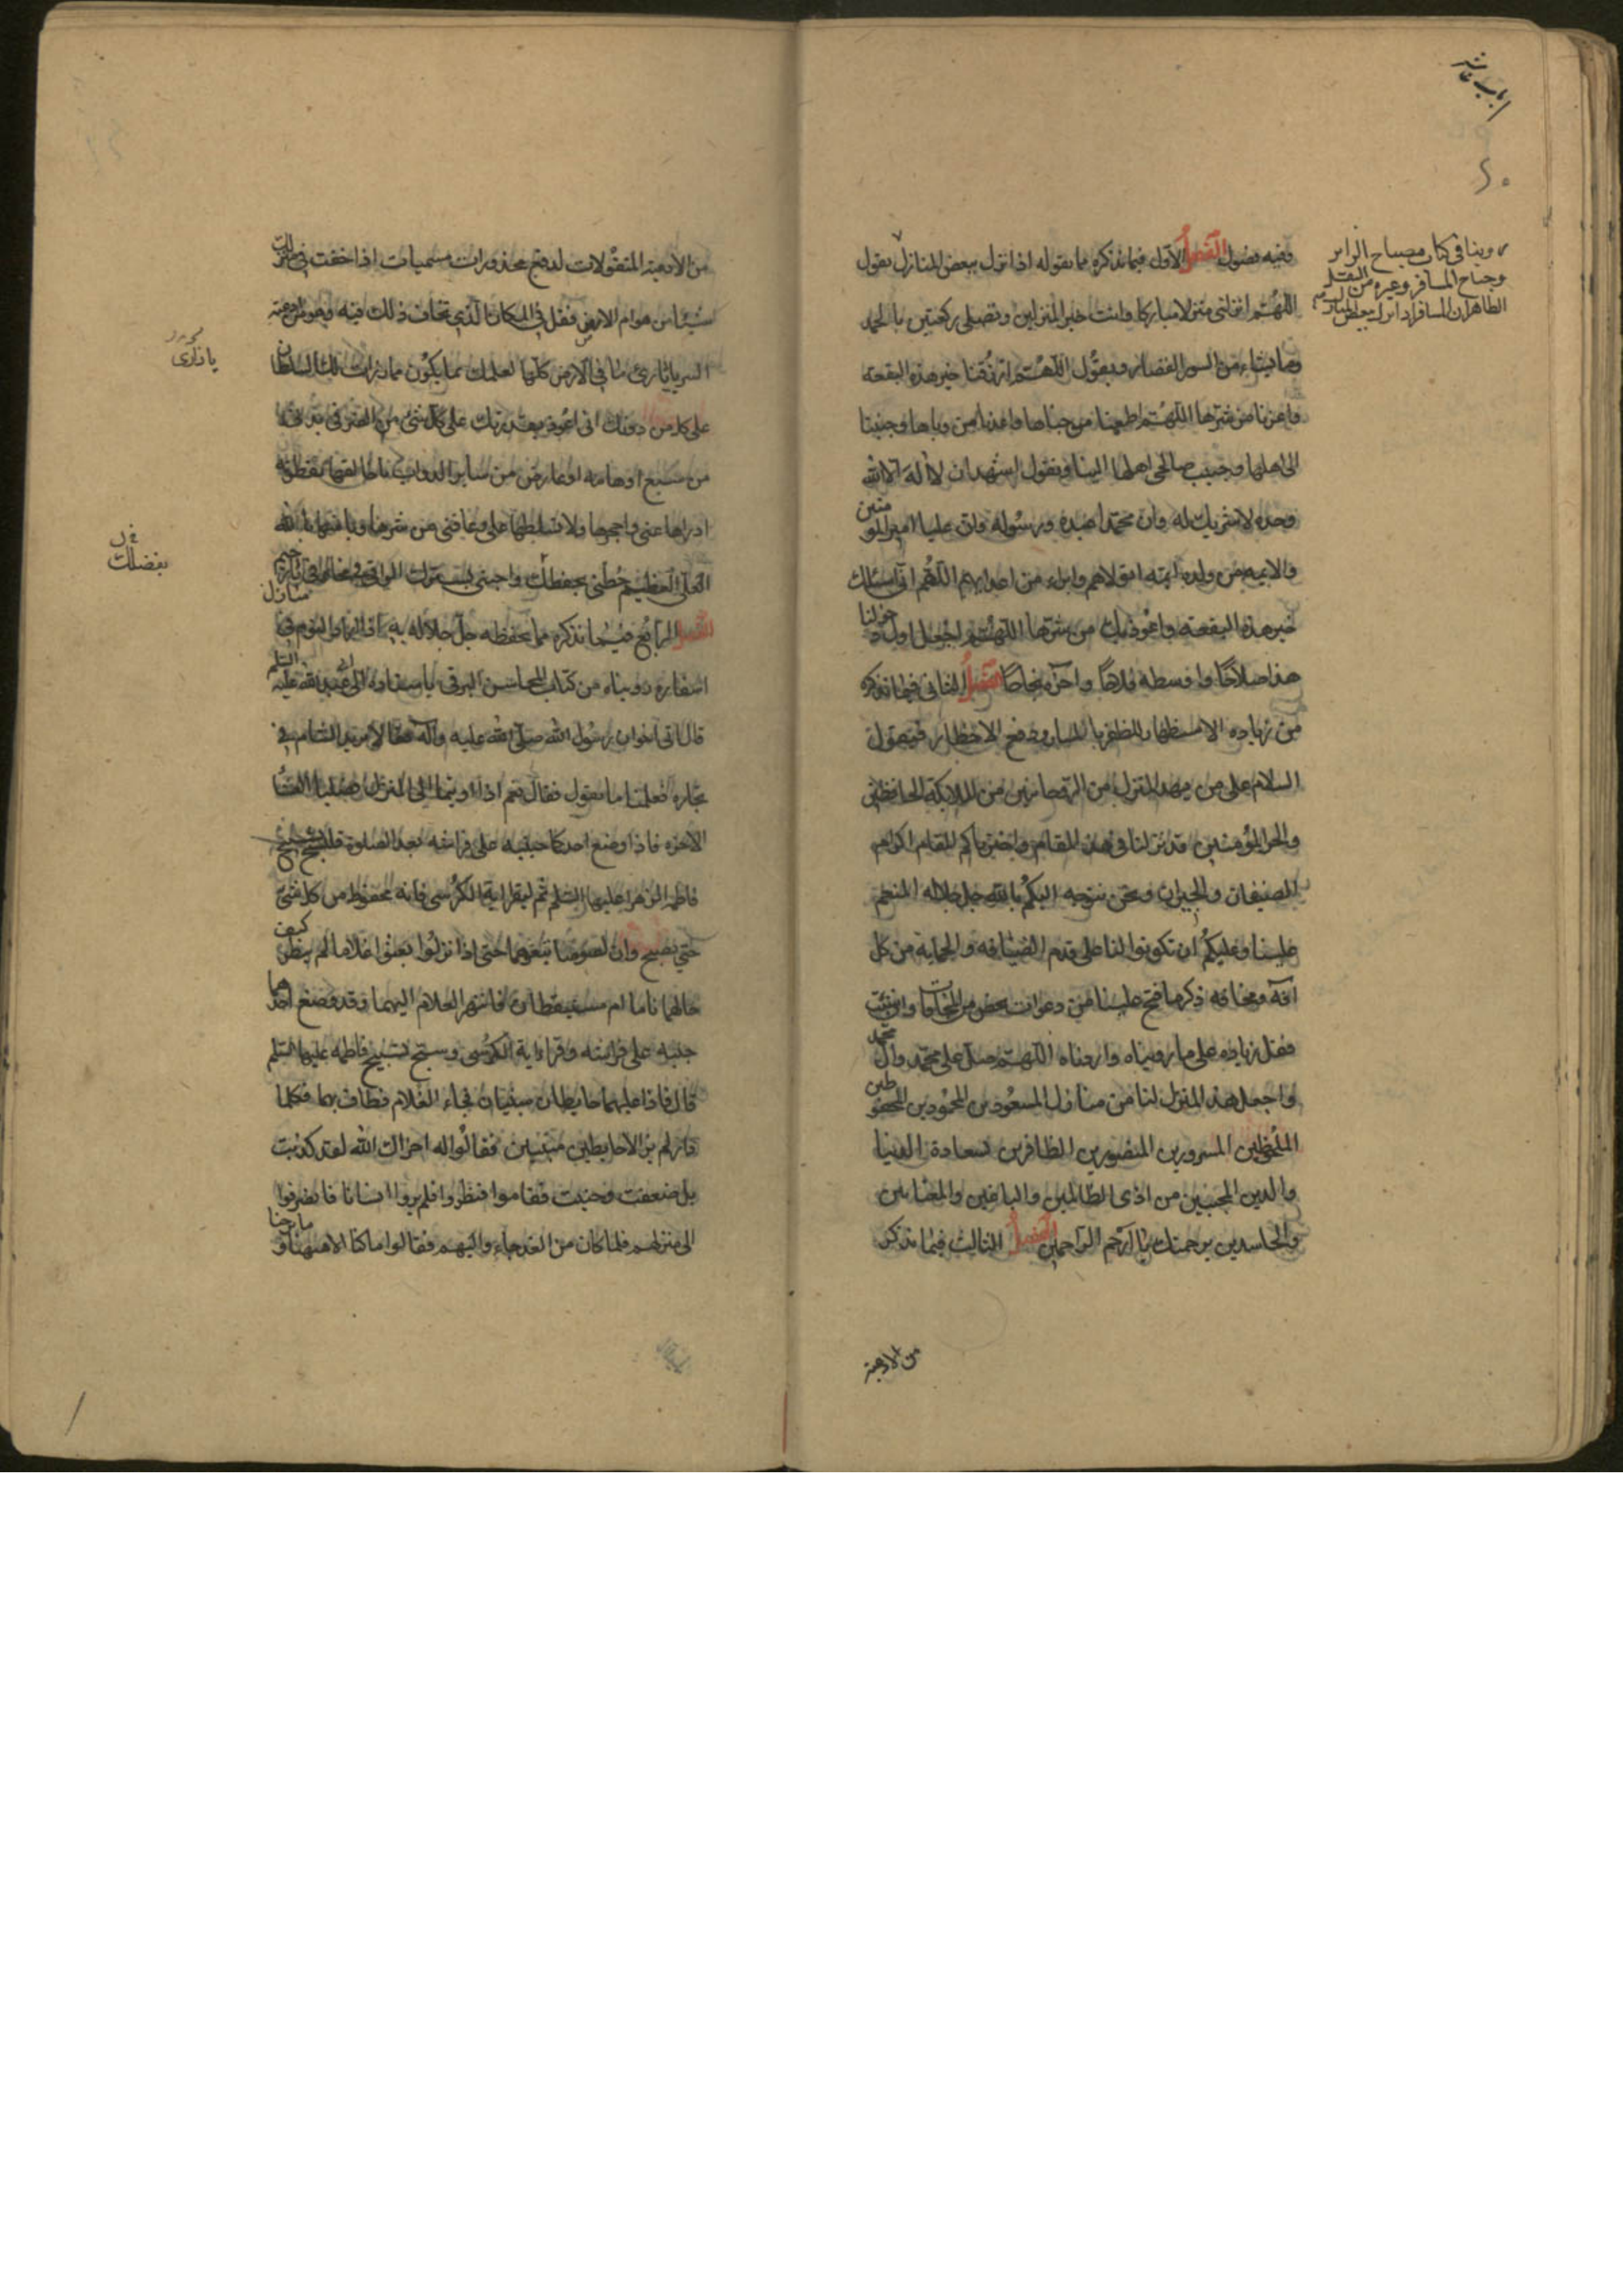 الباب عاشر
٤٠
روينا في كتاب مصباح الزاير
وجناح المسافر وغيره من النقل
الطاهر ان المسافر اذا نزل ببعض المنازل
وفيه فصول الفصل الاول فيما نذكره مما يقوله اذا نزل ببعض المنازل يقول
اللهم انزلني منزلا مباركا وانت خير المنزلين وتصلى ركعتين بالحمد
وما يشاء من السور القصار ويقول اللهم ارزقنا خير هذه البقعة
واعذنا من شرها اللهم اطعمنا من جناها واعذنا من وباها وحببنا
الى اهلها وحبب صالحى اهلها الينا وتقول اشهد ان لا اله الا الله
وحده لا شريك له وان محمدا عبده ورسوله وان عليا امير المو
منين
والايمه من ولده ايمه اتولاهم وابراء من اعدايهم اللهم انى اسئلك
خير هذه البقعة واعوذ بك من شرها اللهم اجعل اول د
خولنا
هذا صلاحًا واوسطه فلاحًا واخره نجاحًا الفصل الثاني فيما نذكره
من زيادة الاستظهار للظفر بالمسار ودفع الاخطار فيقول
السلام على من بهذا المنزل من الروحانيين من الملايكة الحافظين
والجن المؤمنين قد نزلنا في هذا المقام واخترناكم للمقام اكرام
الضيفان والجيران ونحن نتوجه اليكم بالله جل جلاله المنعم
علينا وعليكم ان تكونوا لنا على قدم الضيافه والحماية من كل
افة ومخافه ذكر ما فتح علينا من دعوات بعض من المخافات وان شئت
فقل زيادة على ما رويناه واردناه اللهم صل على محمد وال
محمد
واجعل هذا المنزل لنا من منازل المسعودين المحمودين المحفو
ظين
الملحوظين المسرورين المنصورين الظافرين بسعادة الدنيا
والدين المحميين من اذى الظالمين والباغين والمغتابين
والحاسدين برحمتك يا ارحم الراحمين الفصل الثالث فيما نذكر
من الادعية
من الادعية المنقولات لدفع محذورات مسميات اذا خفت في منزلك
شيئا من هوام الارض فقل في المكان الذي تخاف ذلك فيه وهو من ادعية
السر يا ذارئ ما في الارض كلها لعلمك بما يكون مما ذرات لك السلطان
يا ذارى
على كل من دونك انى اعوذ بقدرتك على كل شئ من الضر في بدنى
من سبع او هامه او عارض من سائر الدواب يا خالقها بفطرته
ادراها عنى واحجزها ولا تسلطها على وعافنى من شرها وباسها يا الله
العلى العظيم حطنى بحفظك واجنبنى بسترك الوافى من مخاوفى يا رحيم
بفضلك
الفصل الرابع فيما نذكره مما يحفظه جل جلاله به اذا اراد النوم في
منازل
اسفاره روينا من كتاب المحاسن للبرقى باسناده الى ابى عبد الله عليه السلم
قال اتى اخوان رسول الله صلى الله عليه وآله فقالا نريد الشام في
تجارة فعلمنا ما نقول فقال نعم اذا اويتما الى المنزل فصليا العشا
الاخره فاذا وضع احدكما جنبه على فراشه بعد الصلوة فليسبح تسبيح
فاطمة الزهرا عليها السلم ثم ليقرا اية الكرسى فانه محفوظ من كل شئ
حتى يصبح وان لصوصا تبعوهما حتى اذا نزلوا بعثوا غلاما لهم ينظر
كيف
حالهما ناما ام مستيقظان فانتهى الغلام اليهما وقد وضع احد
هما
جنبه على فراشه وقرا اية الكرسى وسبح تسبيح فاطمة عليها السلم
قال فاذا عليهما حايطان مبنيان فجاء الغلام فطاف بهما فكلما
دار لم ير الا حايطين مبنيين فقالوا له اخزاك الله لقد كذبت
بل ضعفت وجبنت فقاموا فنظروا فلم يروا انسانا فانصرفوا
الى منزلهم فلما كان من الغد جاءو اليهم فقالوا ما كنا الا هيهنا و
ما برحنا